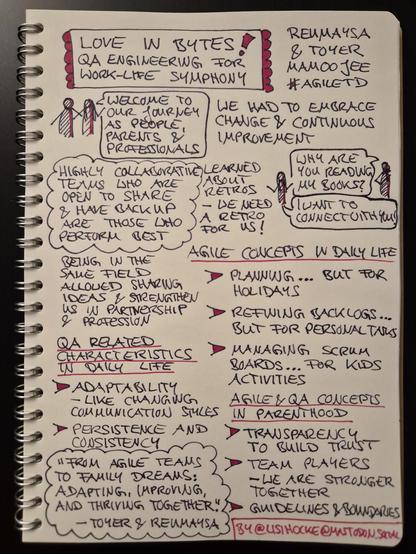 LOVE IN BYTES!
QA ENGINEERING FOR
WORK-LIFE SYMPHONY
REUMAYSA
& TOYER
MAMOOJEE
#AGILETD
WELCOME TO
OUR JOURNEY
AS PEOPLE,
PARENTS &
PROFESSIONALS
WE HAD TO EMBRACE
CHANGE & CONTINUOUS
IMPROVEMENT
HIGHLY COLLABORATIVE
TEAMS WHO ARE
OPEN TO SHARE
& HAVE BACKUP
ARE THOSE WHO
PERFORM BEST
LEARNED
ABOUT
RETROS
- WE NEED
A RETRO
FOR US!
WHY ARE
YOU READING
MY BOOKS?
I WANT TO
CONNECT WITH YOU
BEING IN THE
SAME FIELD
ALLOWED SHARING
IDEAS & STRENGTHEN
US IN PARTNERSHIP
& PROFESSION
QA RELATED
CHARACTERISTICS
IN DAILY LIFE
ADAPTABILITY
- LIKE CHANGING
COMMUNICATION STYLES
PERSISTENCE AND
CONSISTENCY
"FROM AGILE TEAMS
TO FAMILY DREAMS:
ADAPTING, IMPROVING,
AND THRIVING TOGETHER"
- TOYER & REUMAYSA
AGILE CONCEPTS IN DAILY LIFE
PLANNING... BUT FOR
HOLIDAYS
REFINING BACKLOGS...
BUT FOR PERSONAL TASKS
MANAGING SCRUM
BOARDS... FOR KIDS
ACTIVITIES
AGILE & QA CONCEPTS
IN PARENTHOOD
TRANSPARENCY
TO BUILD TRUST
TEAM PLAYERS
- WE ARE STRONGER
TOGETHER
GUIDELINES & BOUNDARIES
BY @LISIHOCKE@MASTODON.SOCIAL